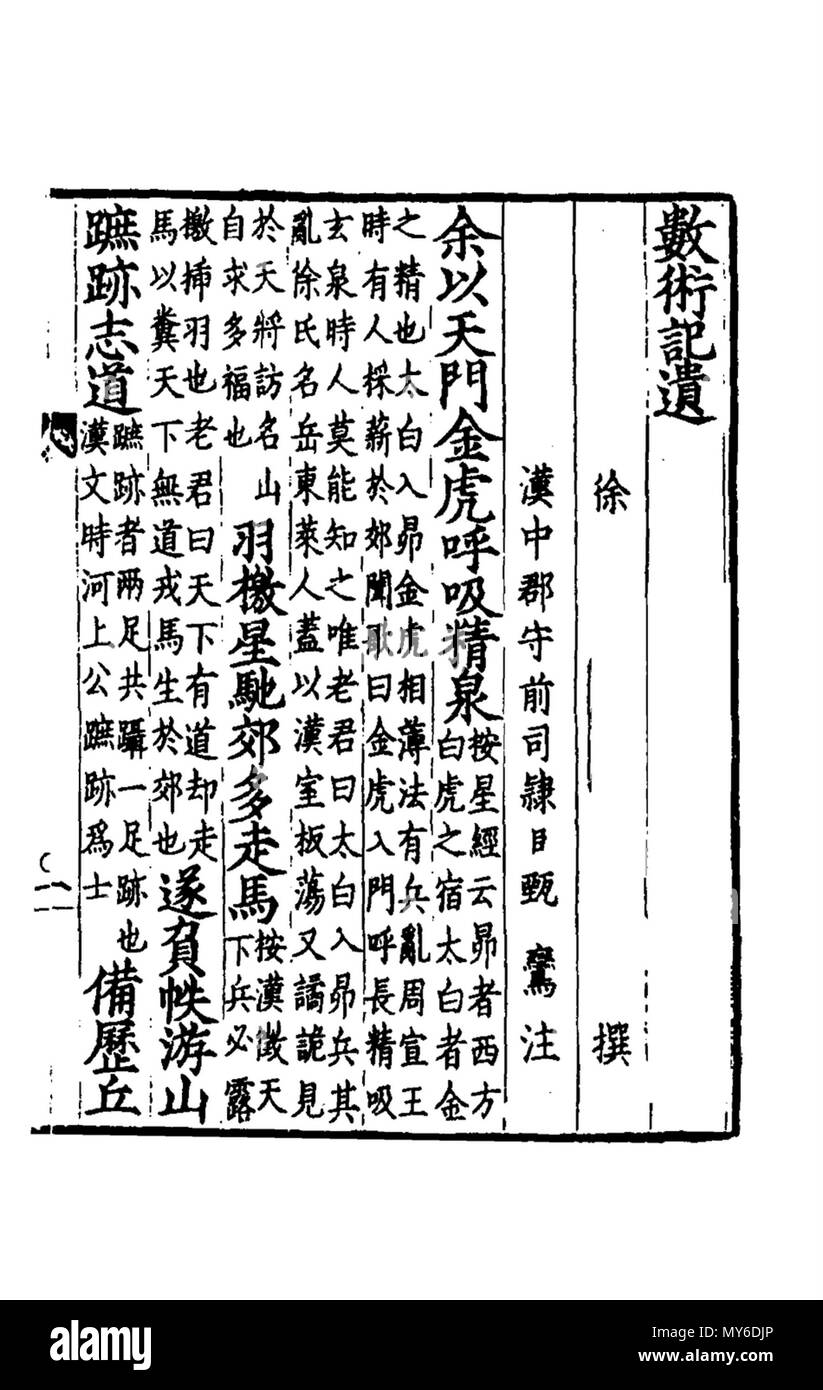 數術記遺
徐 撰
漢中郡守前司隸臣甄鸞注
余以天門金虎呼吸精泉
按星經云昴者西方
白虎之宿太白者金
之精也太白入昴金虎相薄法有兵亂周宣王
時有人採薪於郊聞歌曰金虎入門呼長精吸
玄泉時人莫能知之唯老君曰太白入昴兵其
亂徐氏名岳東萊人蓋以漢室板蕩又譎詭見
於天將訪名山
自求多福也
羽檄星馳郊多走馬
按漢徵天
下兵必露
檄揷羽也老君曰天下有道却走
馬以糞天下無道戎馬生於郊也
遂負帙游山
蹠跡志道
蹠跡者兩足共躡一足跡也
漢文時河上公蹠跡爲士
備歷丘
一
alamy
Image ID: MY6DJP
www.alamy.com